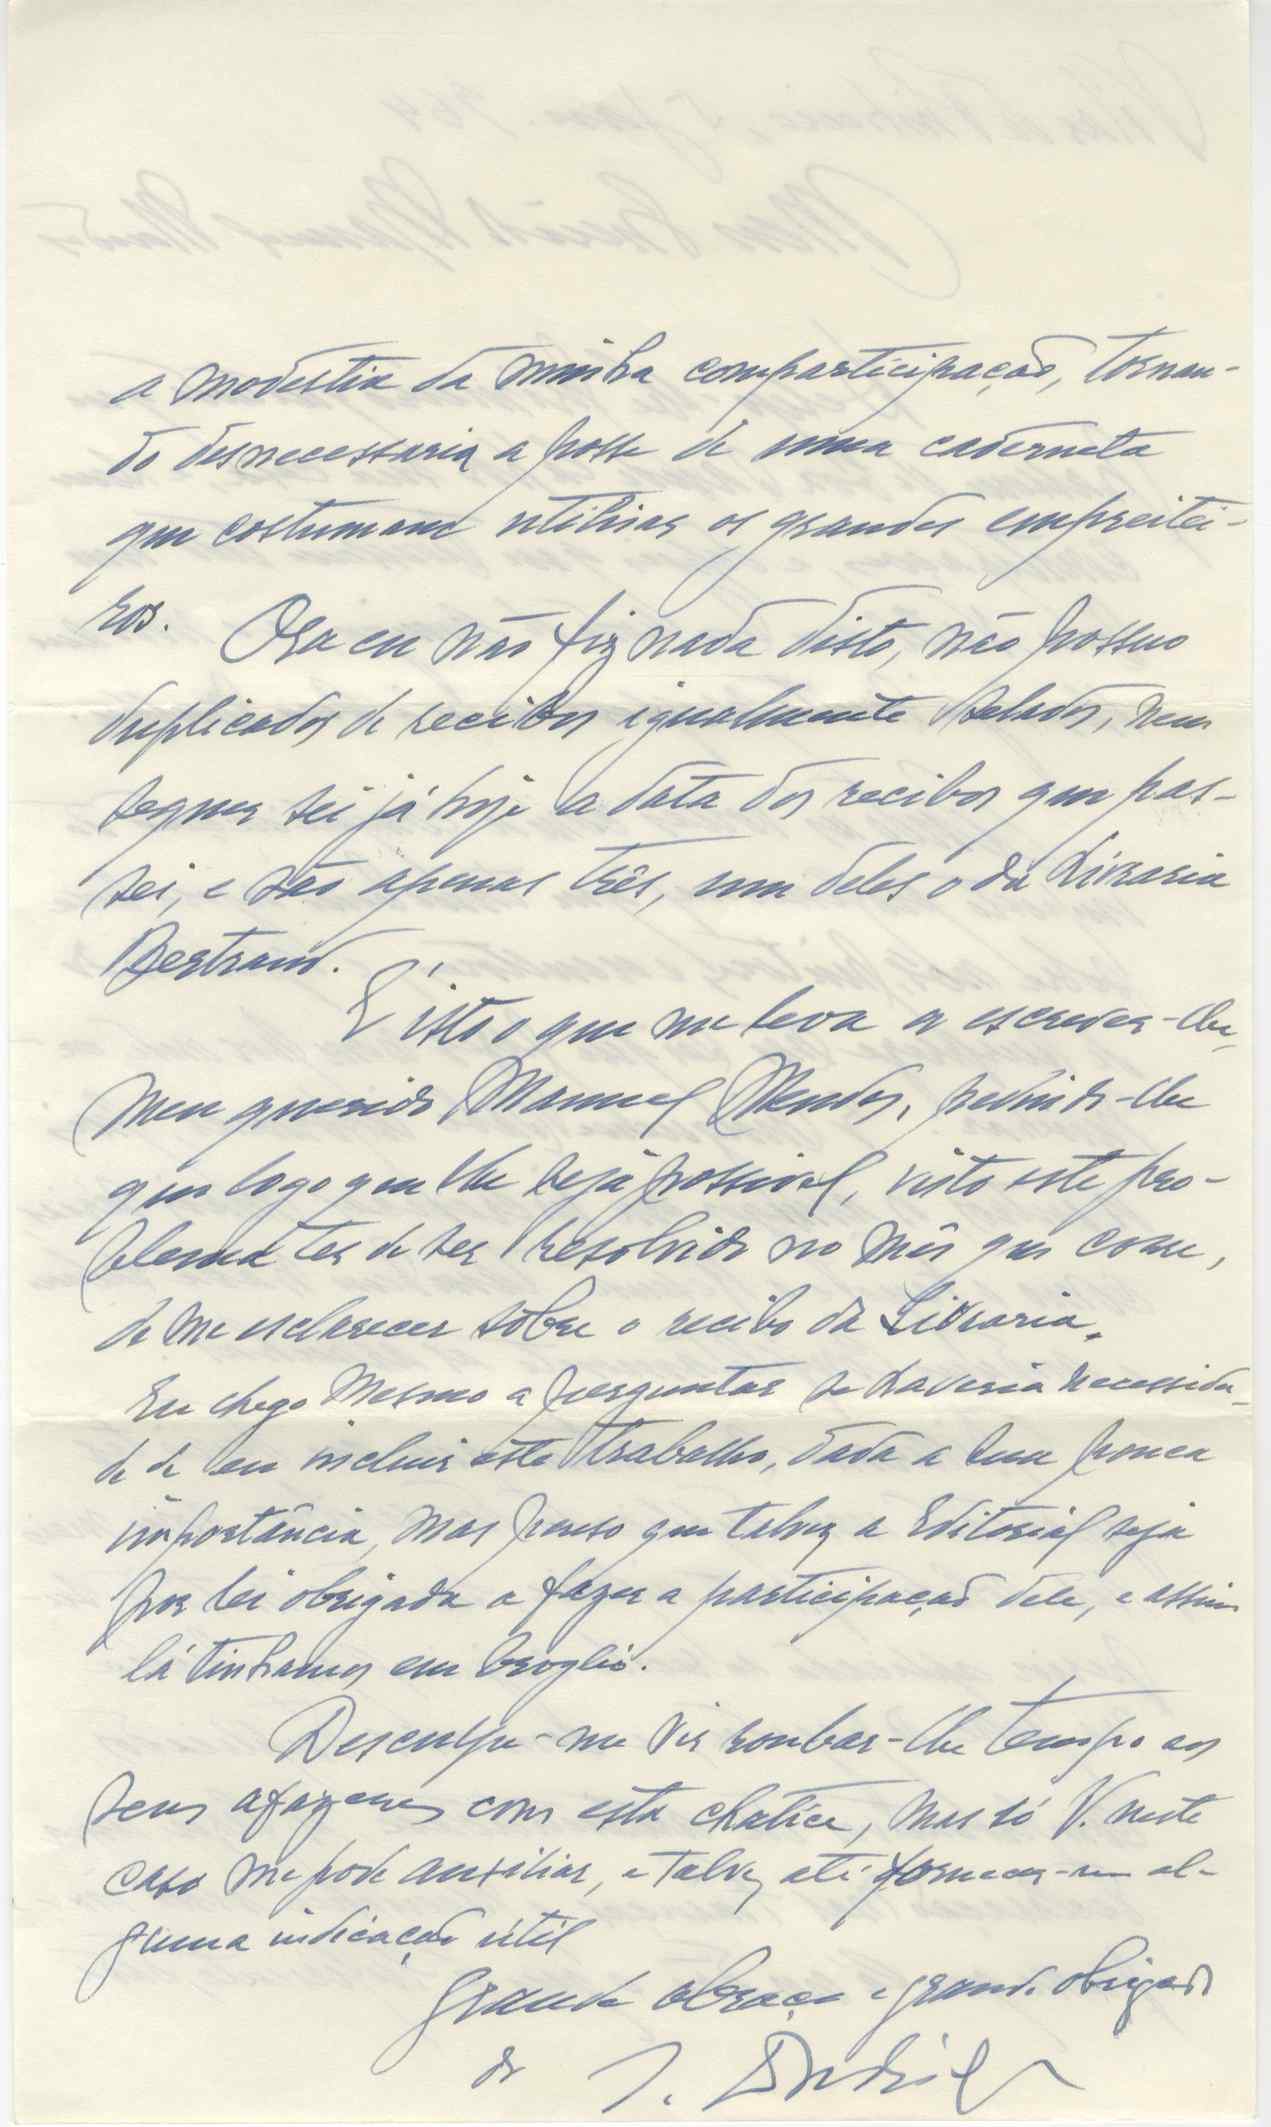 a modestia da minha comparticipação, tornan-
do desnecessaria a posse de uma caderneta
que costumam utilisar os grandes empreitei-
ros.
Ora eu não fiz nada disto, não possuo
duplicados de recibos igualmente selados, nem
sequer sei já hoje a data dos recibos que pas-
sei, e são apenas três, um deles o da Livraria
Bertrand.
É isto o que me leva a escrever-lhe,
meu querido Manuel Mendes, pedindo-lhe
que logo que lhe seja possivel, visto este pro-
blema ter de ser resolvido no mês que corre,
de me esclarecer sôbre o recibo da Livraria.
Eu chego mesmo a perguntar se haveria necessida-
de de eu incluir êste trabalho, dada a sua pouca
importância, mas penso que talvez a Editorial seja
por lei obrigada a fazer a participação dele, e assim
lá tinhamos em broglio.
Desculpe-me vir roubar-lhe tempo aos
seus afazeres com esta chatice, mas só V. neste
caso me pode auxiliar, e talvez até fornecer-me al-
guma indicação útil
Grande abraço e grande obrigado
do